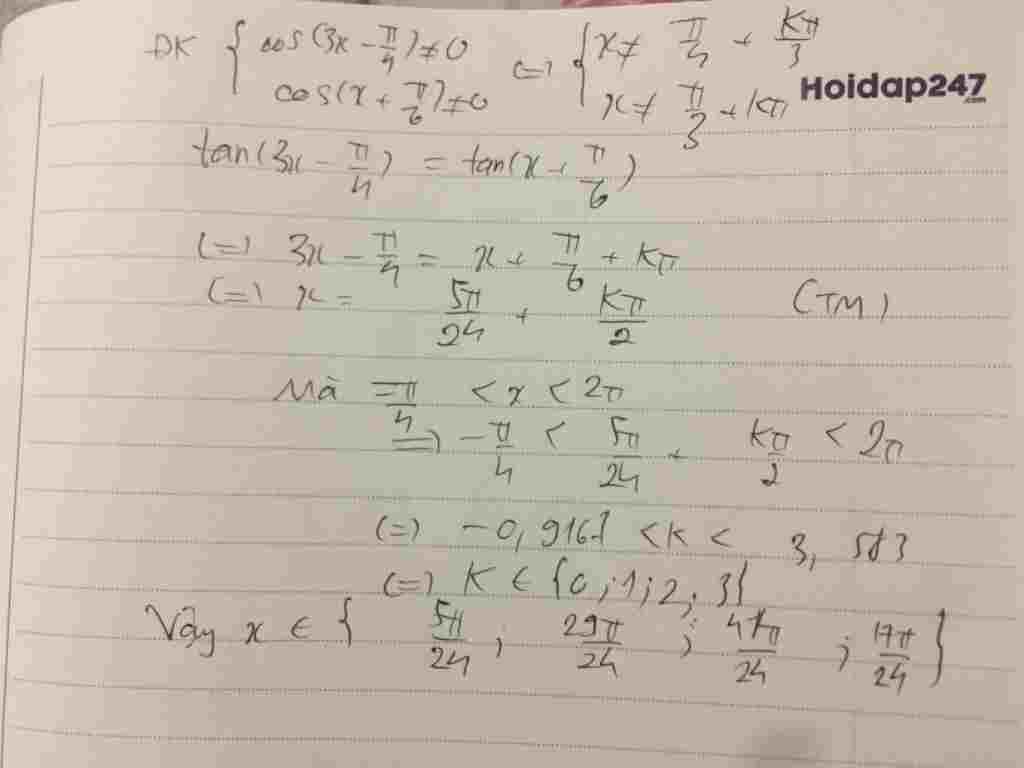 ĐK { cos(3x - π/4) ≠ 0 (=) { x ≠ π/4 + kπ/3
cos(x + π/6) ≠ 0 x ≠ π/3 + kπ
Hoidap247.com
tan(3x - π/4) = tan(x + π/6)
(=) 3x - π/4 = x + π/6 + kπ
(=) x = 5π/24 + kπ/2 (TM)
Mà -π/4 < x < 2π
=) -π/4 < 5π/24 + kπ/2 < 2π
(=) -0,916 < k < 3,583
(=) K ∈ {0;1;2;3}
Vậy x ∈ { 5π/24 ; 29π/24 ; 41π/24 ; 17π/24 }